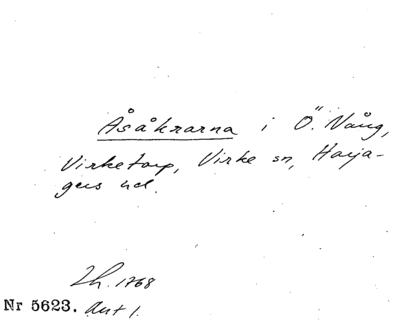 Åsåkrarna i Ö. Vång,
Virketorp, Virke sn, Harja-
gers hd.
Lh. 1768
Nr 5623. Akt 1.